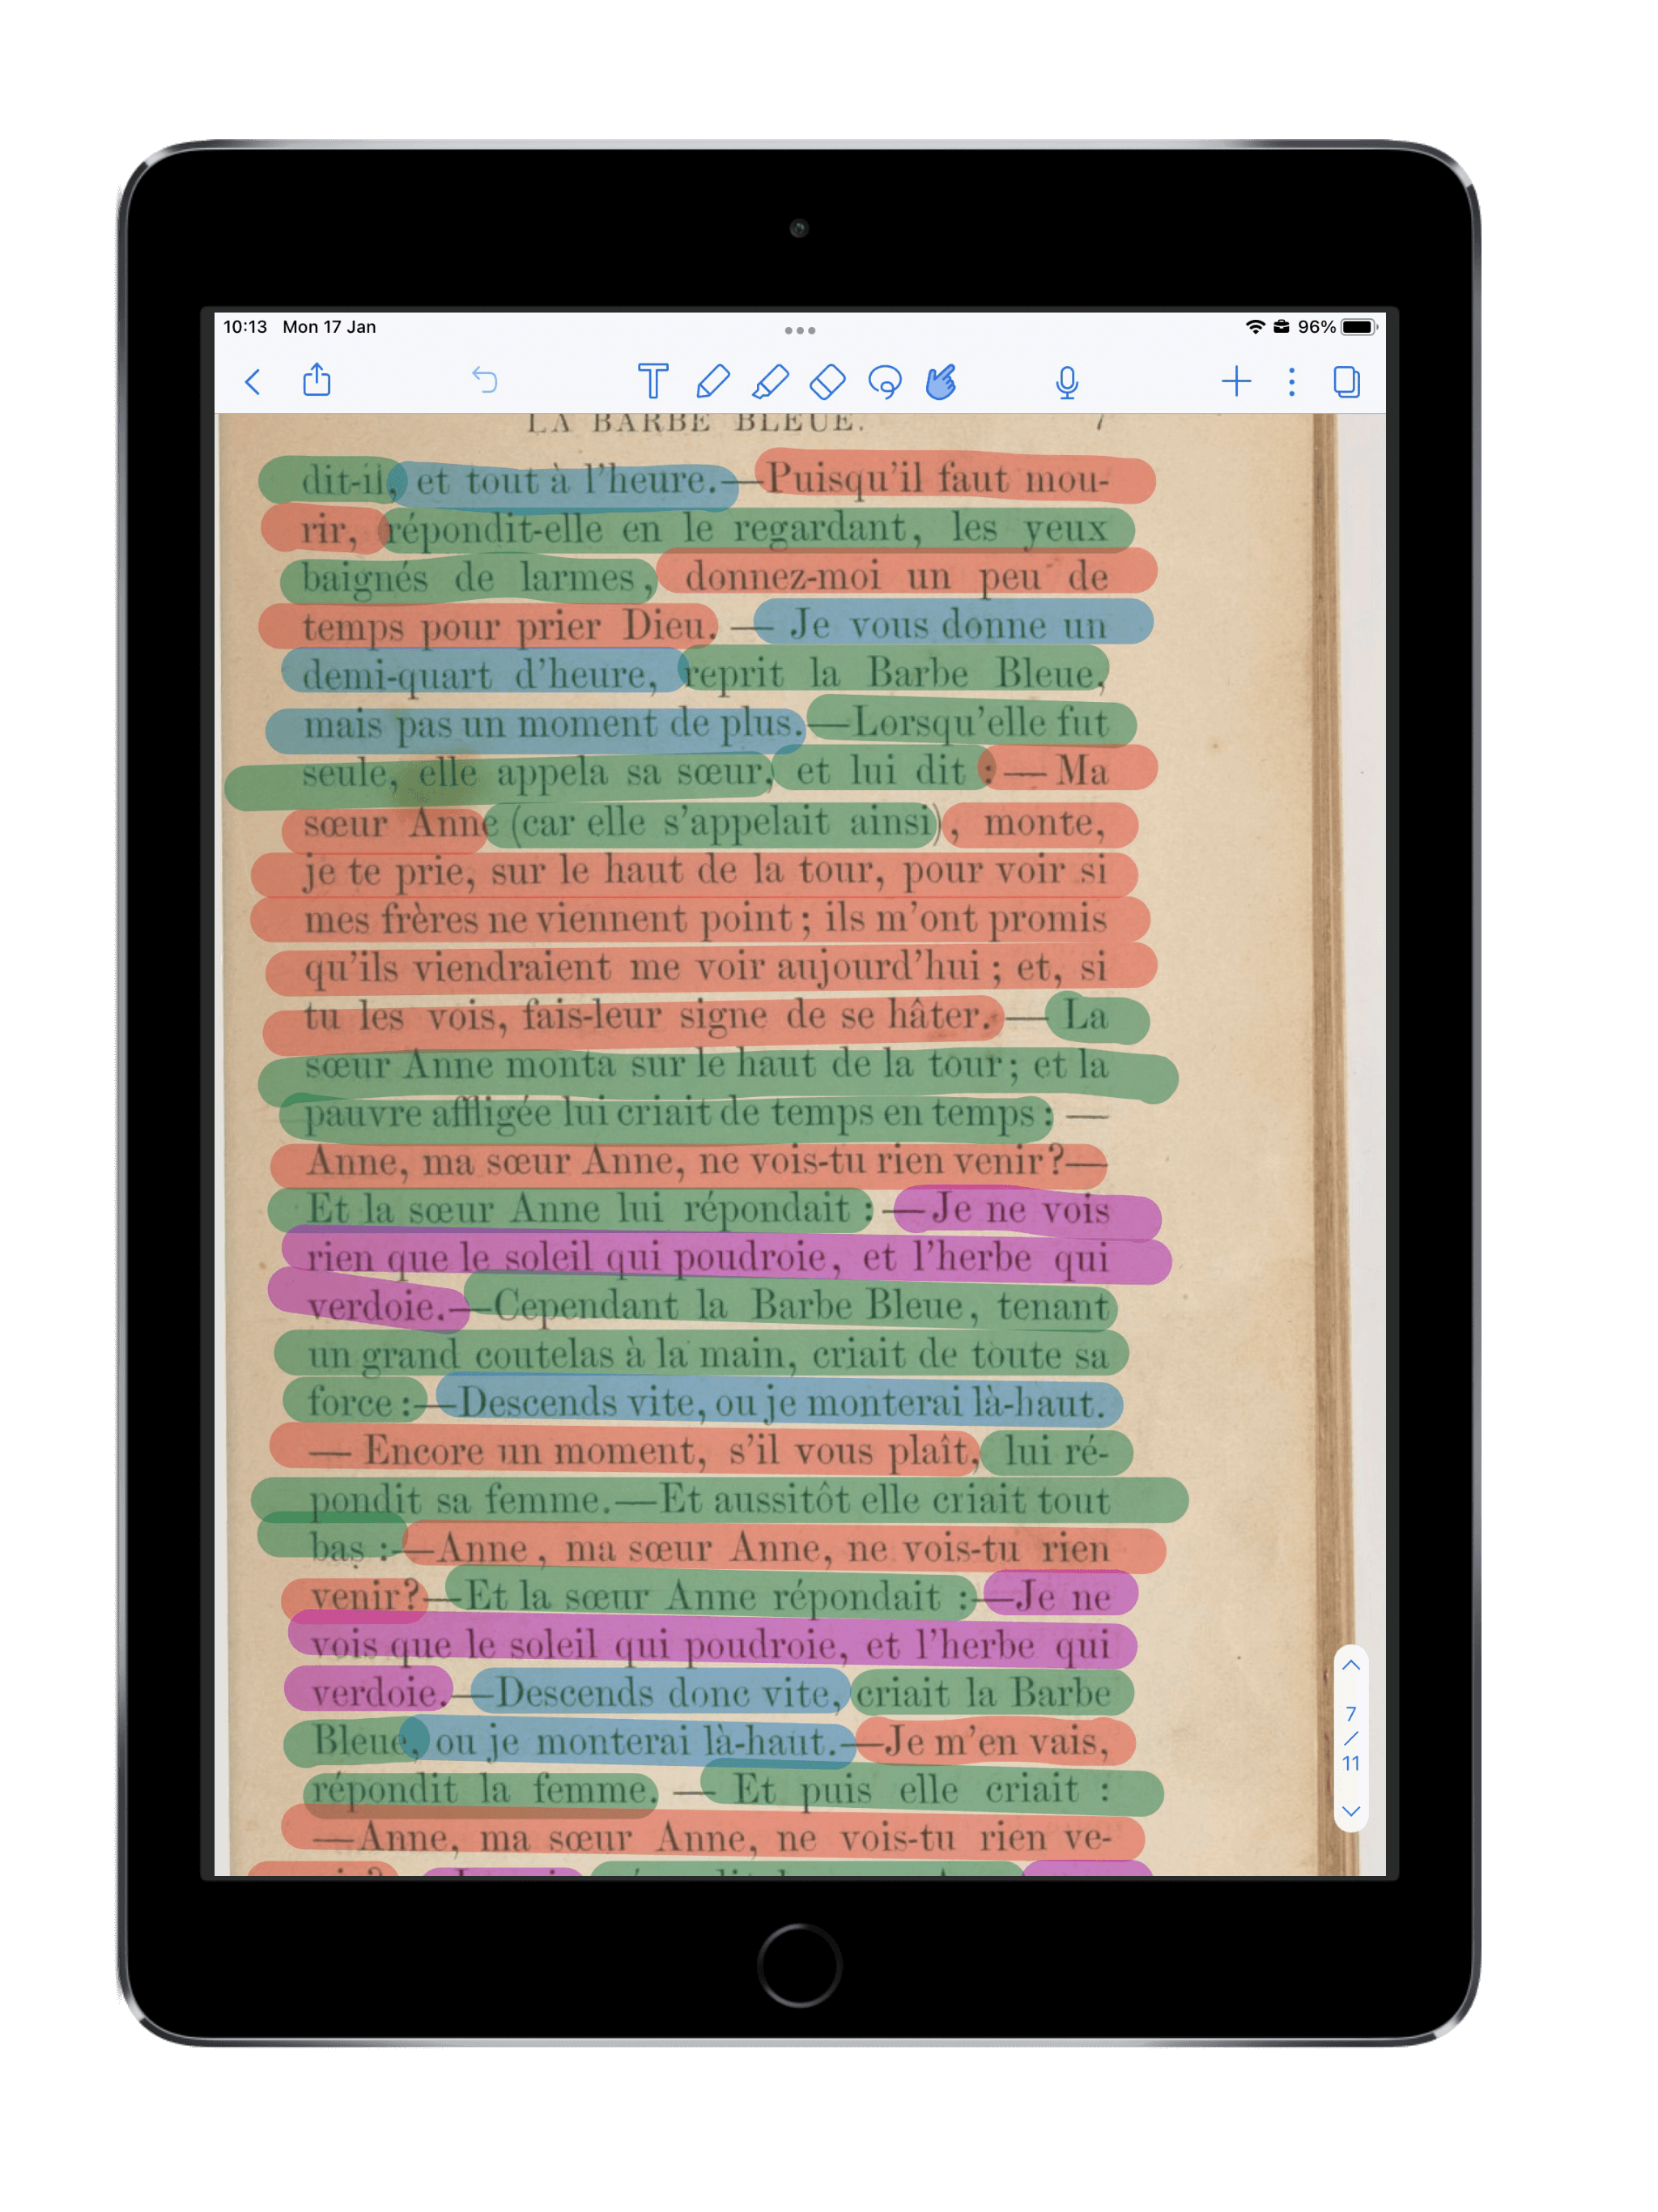 10:13 Mon 17 Jan 96%
LA BARBE BLEUE. 7
dit-il, et tout à l'heure.—Puisqu'il faut mou-
rir, répondit-elle en le regardant, les yeux
baignés de larmes, donnez-moi un peu de
temps pour prier Dieu. — Je vous donne un
demi-quart d'heure, reprit la Barbe Bleue,
mais pas un moment de plus.—Lorsqu'elle fut
seule, elle appela sa sœur, et lui dit : — Ma
sœur Anne (car elle s'appelait ainsi), monte,
je te prie, sur le haut de la tour, pour voir si
mes frères ne viennent point ; ils m'ont promis
qu'ils viendraient me voir aujourd'hui ; et, si
tu les vois, fais-leur signe de se hâter. — La
sœur Anne monta sur le haut de la tour ; et la
pauvre affligée lui criait de temps en temps : —
Anne, ma sœur Anne, ne vois-tu rien venir?—
Et la sœur Anne lui répondait : —Je ne vois
rien que le soleil qui poudroie, et l'herbe qui
verdoie.—Cependant la Barbe Bleue, tenant
un grand coutelas à la main, criait de toute sa
force :—Descends vite, ou je monterai là-haut.
— Encore un moment, s'il vous plaît, lui ré-
pondit sa femme.—Et aussitôt elle criait tout
bas :—Anne, ma sœur Anne, ne vois-tu rien
venir?—Et la sœur Anne répondait :—Je ne
vois que le soleil qui poudroie, et l'herbe qui
verdoie.—Descends donc vite, criait la Barbe
Bleue, ou je monterai là-haut.—Je m'en vais,
répondit la femme. — Et puis elle criait :
—Anne, ma sœur Anne, ne vois-tu rien ve-
7
/
11